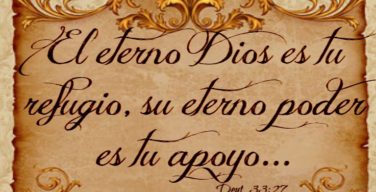 El eterno Dios es tu
refugio, su eterno poder
es tu apoyo...
Deut. 33:27